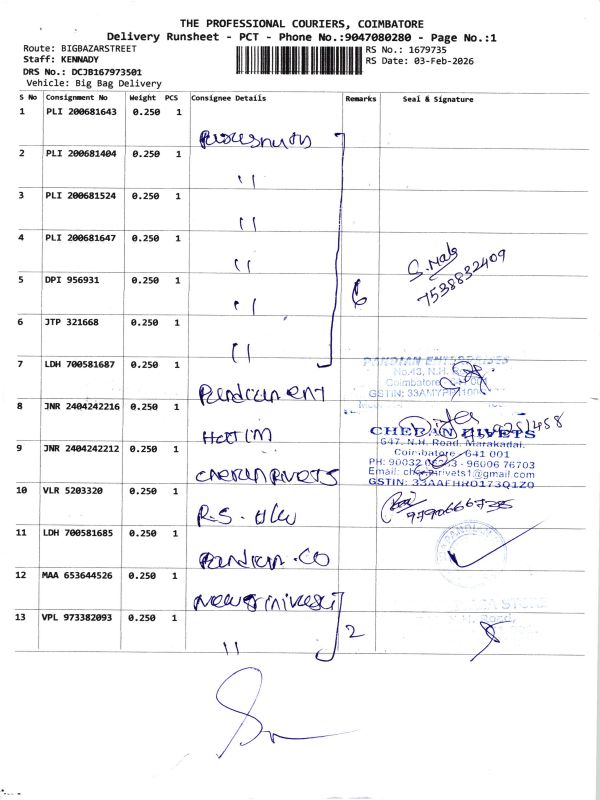 THE PROFESSIONAL COURIERS, COIMBATORE
Delivery Runsheet - PCT - Phone No.:9047080280 - Page No.:1
Route: BIGBAZARSTREET
Staff: KENNADY
DRS No.: DCJB167973501
Vehicle: Big Bag Delivery
RS No.: 1679735
RS Date: 03-Feb-2026
S No Consignment No Weight PCS Consignee Details Remarks Seal & Signature
1 PLI 200681643 0.250 1
2 PLI 200681404 0.250 1 "
3 PLI 200681524 0.250 1 "
4 PLI 200681647 0.250 1 "
5 DPI 956931 0.250 1 " 6
6 JTP 321668 0.250 1 "
7 LDH 700581687 0.250 1 Pandian ent
8 JNR 2404242216 0.250 1 Hatim
9 JNR 2404242212 0.250 1 Cheran Rivets
10 VLR 5203320 0.250 1 R.S.
11 LDH 700581685 0.250 1 Pandian. Co
12 MAA 653644526 0.250 1
13 VPL 973382093 0.250 1 " 2
7538832409
PANDIAN ENTERPRISES
No.43, N.H.
Coimbatore 641 001
CHERAN RIVETS
647, N.H. Road, Marakadai,
Coimbatore 641 001
PH: 90032 - 96006 76703
GSTIN: 33AAFHR0173Q1Z0
9790666735